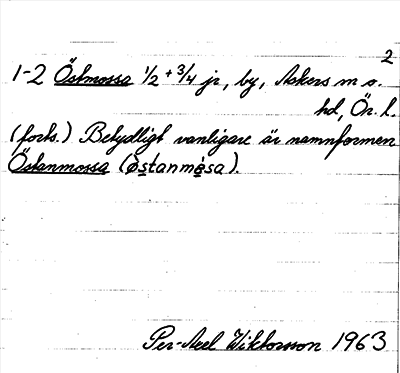 2
1-2 Östmossa 1/2 + 3/4 jr, by, Askers sn o.
hd, Ör. l.
(forts.) Betydligt vanligare är namnformen
Östanmossa (östanmòsa).
Per-Axel Wiktorsson 1963